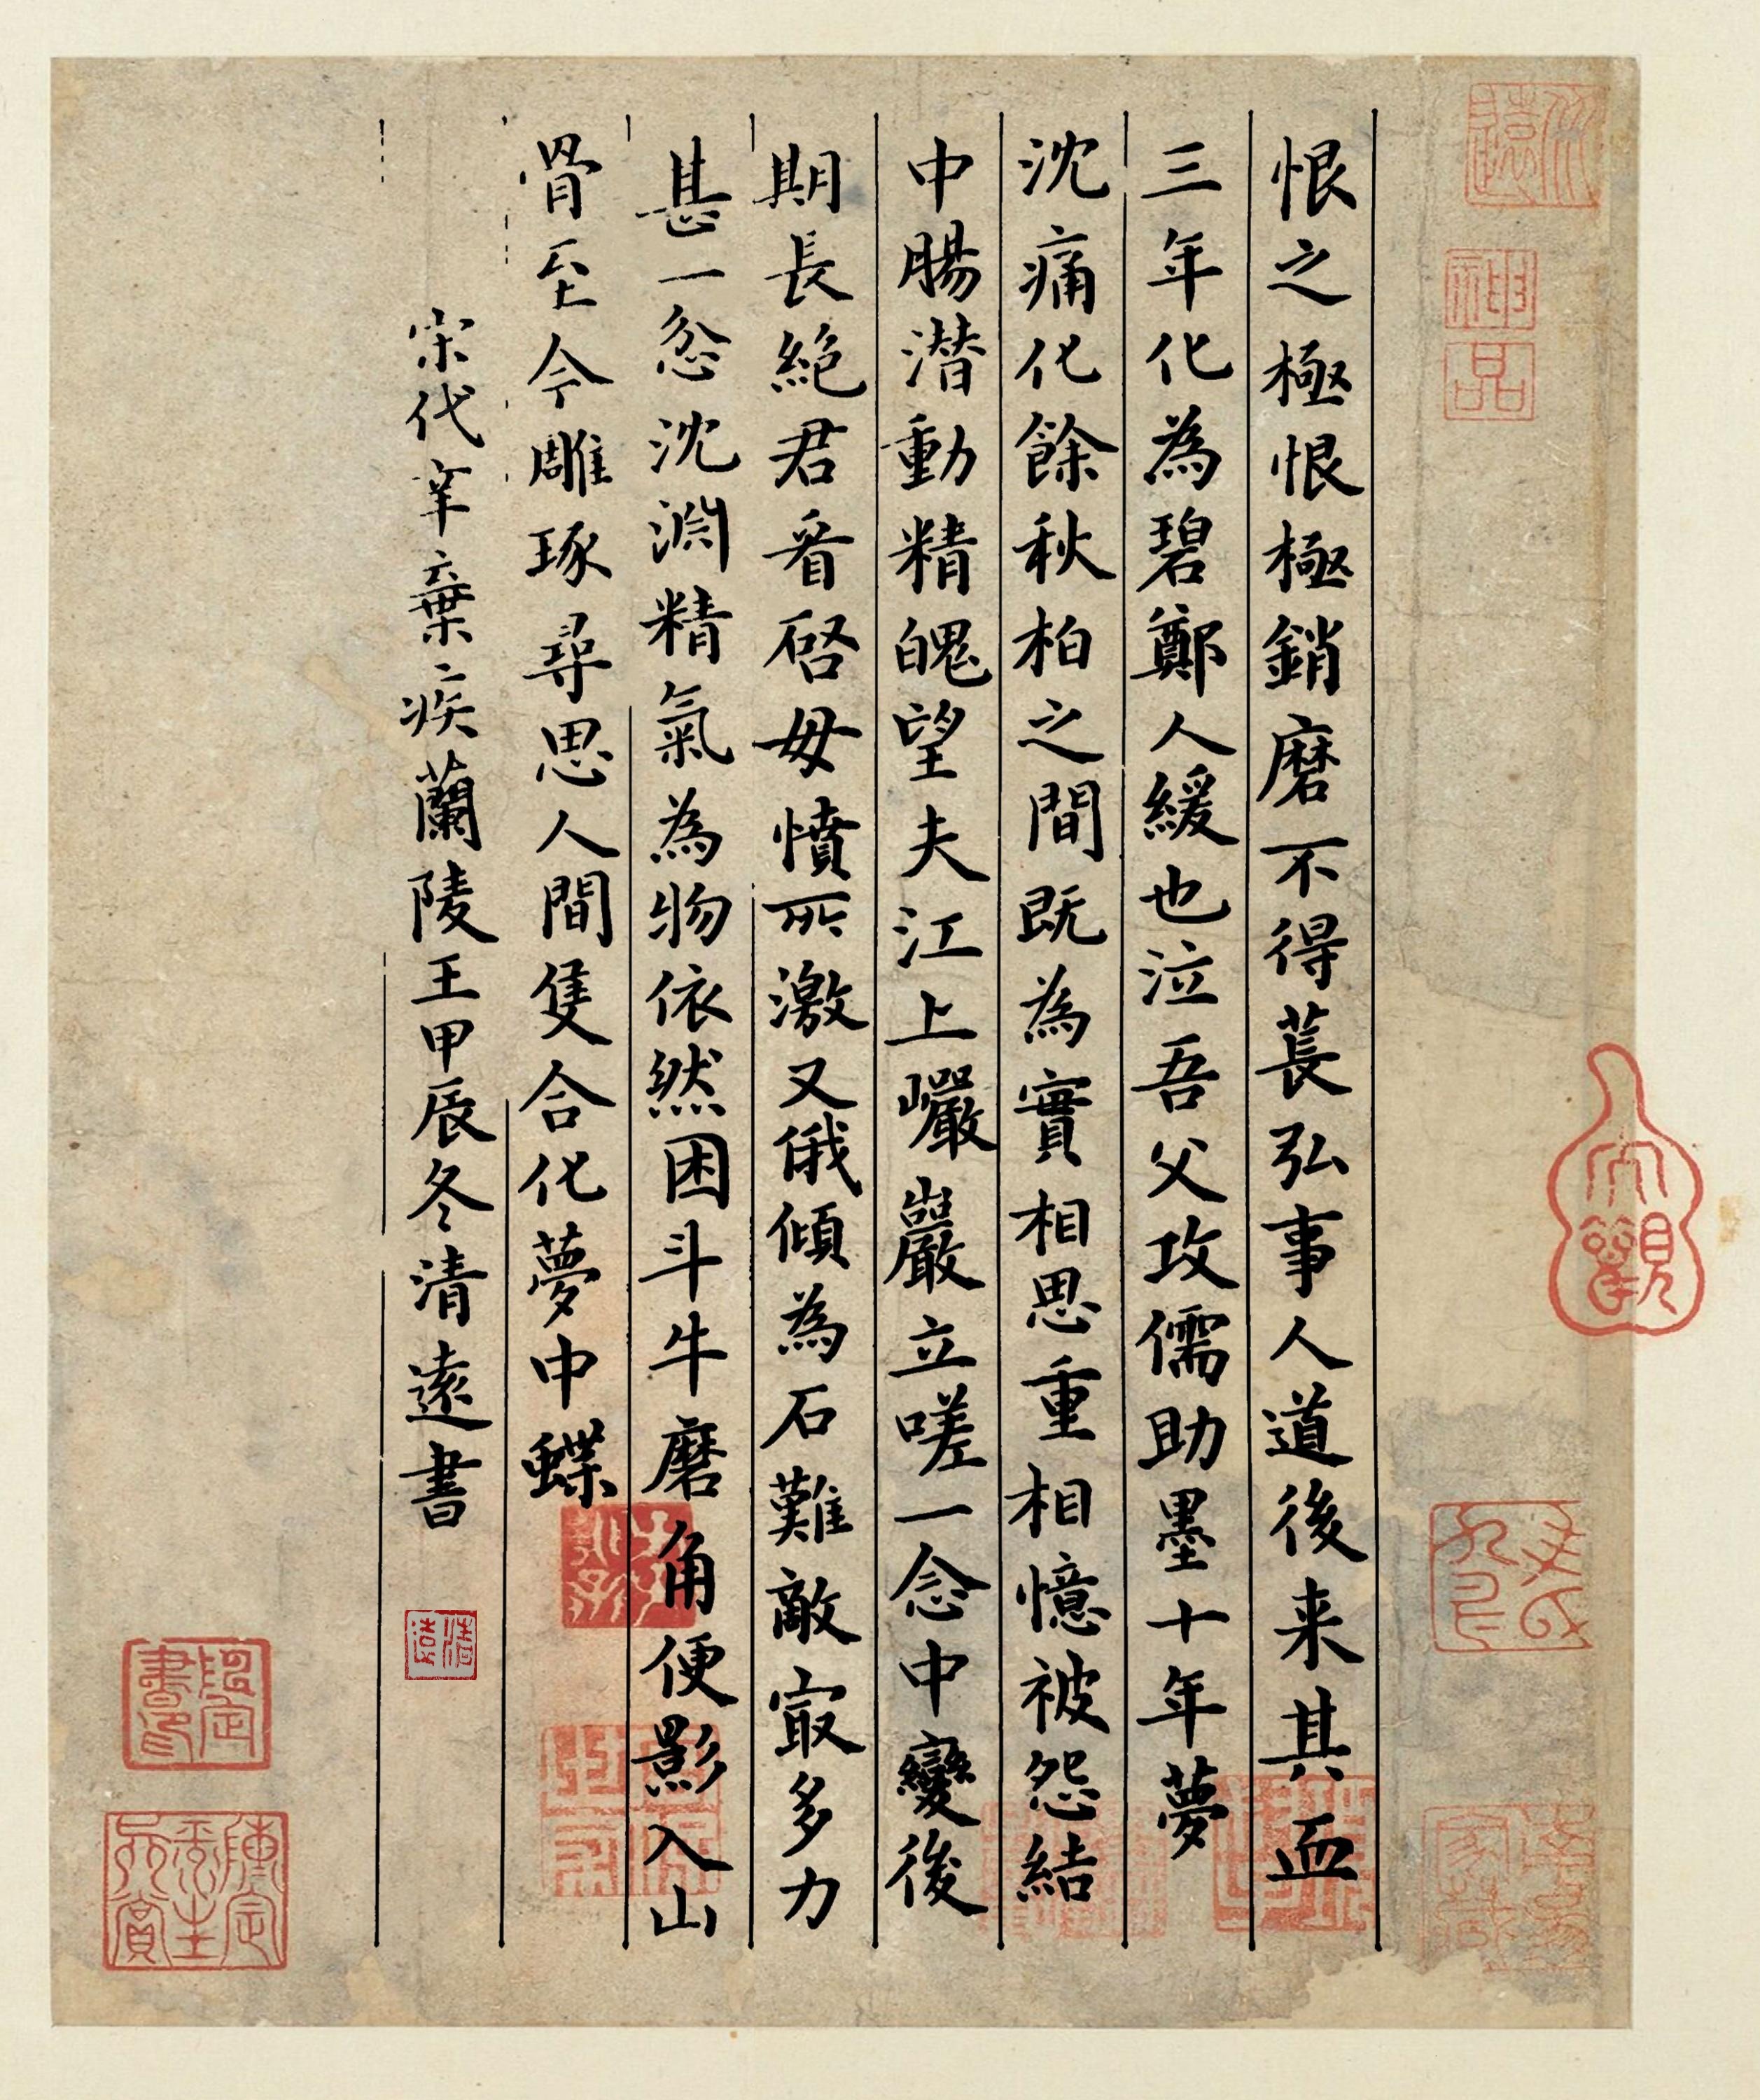 恨之極恨極銷磨不得萇弘事人道後来其血
三年化為碧鄭人緩也泣吾父攻儒助墨十年夢
沈痛化餘秋柏之間既為實相思重相憶被怨結
中腸潜動精魄望夫江上巖巖立嗟一念中變後
期長絶君看啓母憤所激又俄傾為石難敵㝡多力
甚一忿沈淵精氣為物依然困斗牛磨角便影入山
骨至今雕琢尋思人間隻合化夢中蝶
宋代辛棄疾蘭陵王甲辰冬清遠書
清遠
神品
大觀